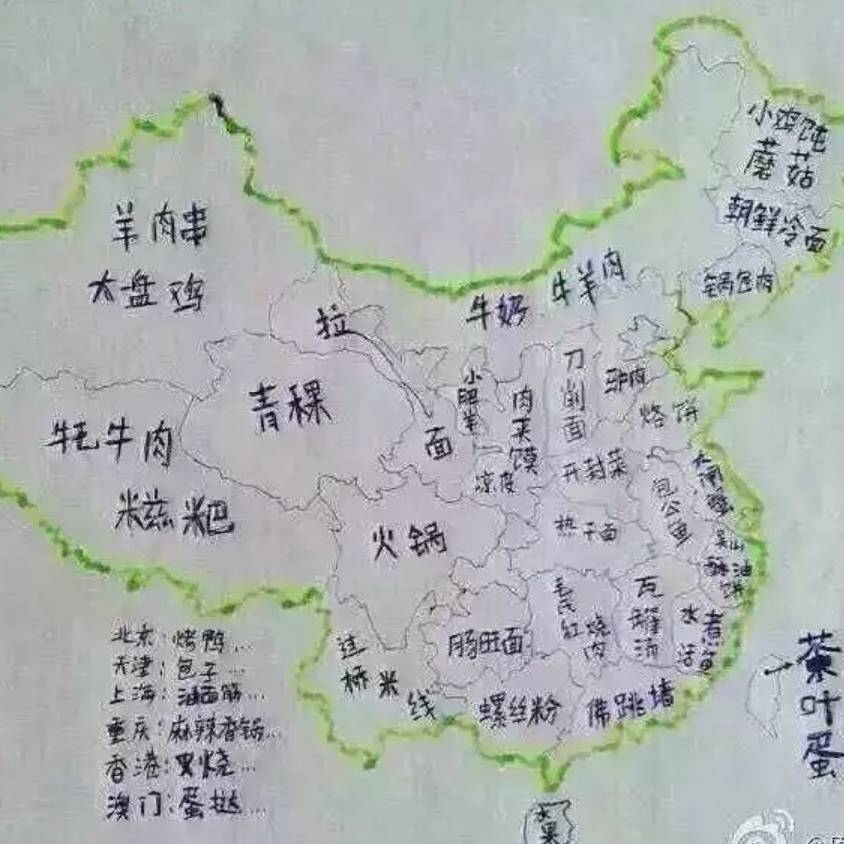 小鸡炖
蘑菇
朝鲜冷面
锅包肉
羊肉串
大盘鸡
牛奶 牛羊肉
拉
面
青稞
小肥羊
肉夹馍
凉皮
刀削面
驴肉
烙饼
开封菜
牦牛肉
糍粑
火锅
热干面
包公鱼
大闸蟹
吴山
酥油
饼
过
桥米
线
肠旺面
毛氏
红烧
肉
瓦罐汤
水煮
活鱼
螺丝粉
佛跳墙
茶叶蛋
水果
北京:烤鸭...
天津:包子...
上海:油面筋...
重庆:麻辣香锅...
香港:叉烧...
澳门:蛋挞...